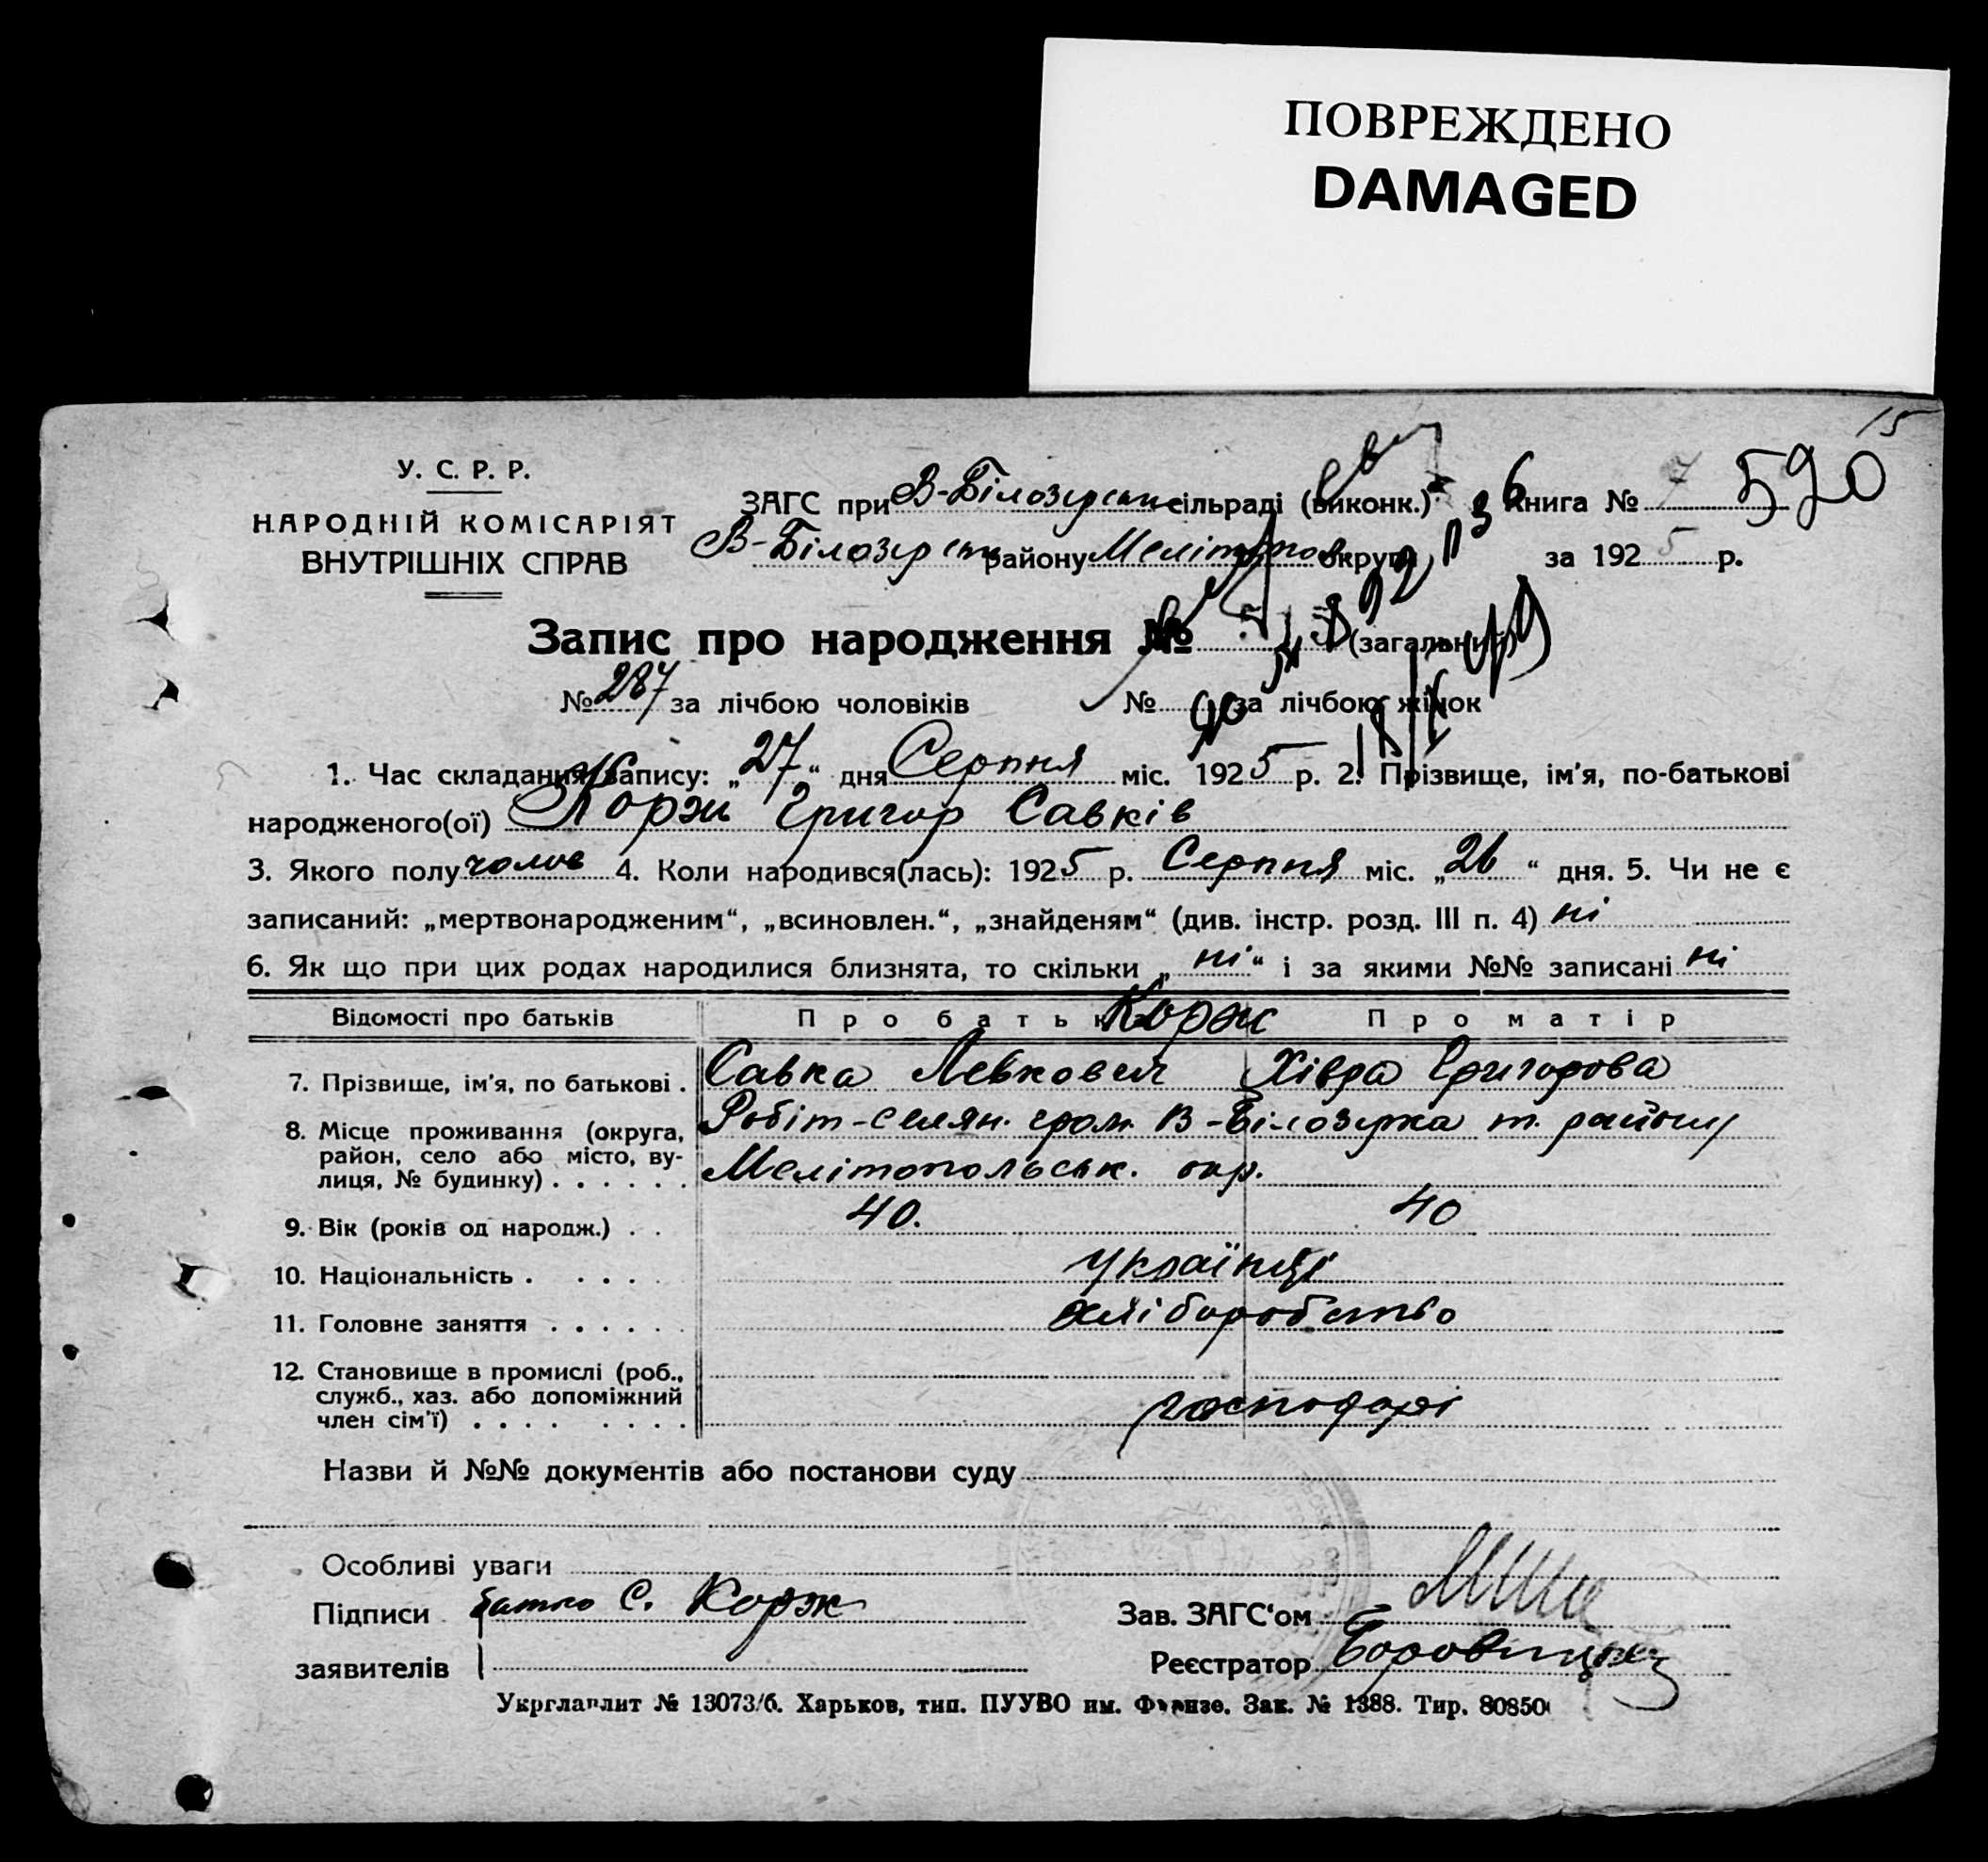 ПОВРЕЖДЕНО
DAMAGED
15
У. С. Р. Р.
НАРОДНІЙ КОМІСАРІЯТ
ВНУТРІШНІХ СПРАВ
ЗАГС при В-Білозерськ сільраді (виконк.) Книга № 7 590
В-Білозерськ району Мелітопол округи за 1925 р.
Запис про народження № (загальний)
№ 287 за лічбою чоловіків № за лічбою жінок
1. Час складання запису: „27“ дня Серпня міс. 1925 р. 2. Прізвище, ім'я, по-батькові
народженого(ої) Корж Григор Савків
3. Якого полу чолов 4. Коли народився(лась): 1925 р. Серпня міс. „26“ дня. 5. Чи не є
записаний: „мертвонародженим“, „всиновлен.“, „знайденям“ (див. інстр. розд. III п. 4) ні
6. Як що при цих родах народилися близнята, то скільки „ні“ і за якими №№ записані ні
Відомості про батьків Про батька Корж Про матір
7. Прізвище, ім'я, по батькові . Савка Левкович Хівря Григорова
8. Місце проживання (округа, Робіт-селян. гром. В-Білозерка т. району
район, село або місто, ву-
лиця, № будинку) . . . . . . Мелітопольськ. окр.
9. Вік (років од народж.) . . 40. 40
10. Національність . . . . . українці
11. Головне заняття . . . . . . хліборобство
12. Становище в промислі (роб.,
служб., хаз. або допоміжний
член сім'ї) . . . . . . . . господарі
Назви й №№ документів або постанови суду
Особливі уваги
Підписи батько С. Корж Зав. ЗАГС'ом
заявителів Реєстратор
Укрглавлит № 13073/б. Харьков, тип. ПУУВО им. Фрунзе. Зак. № 1388. Тир. 80850